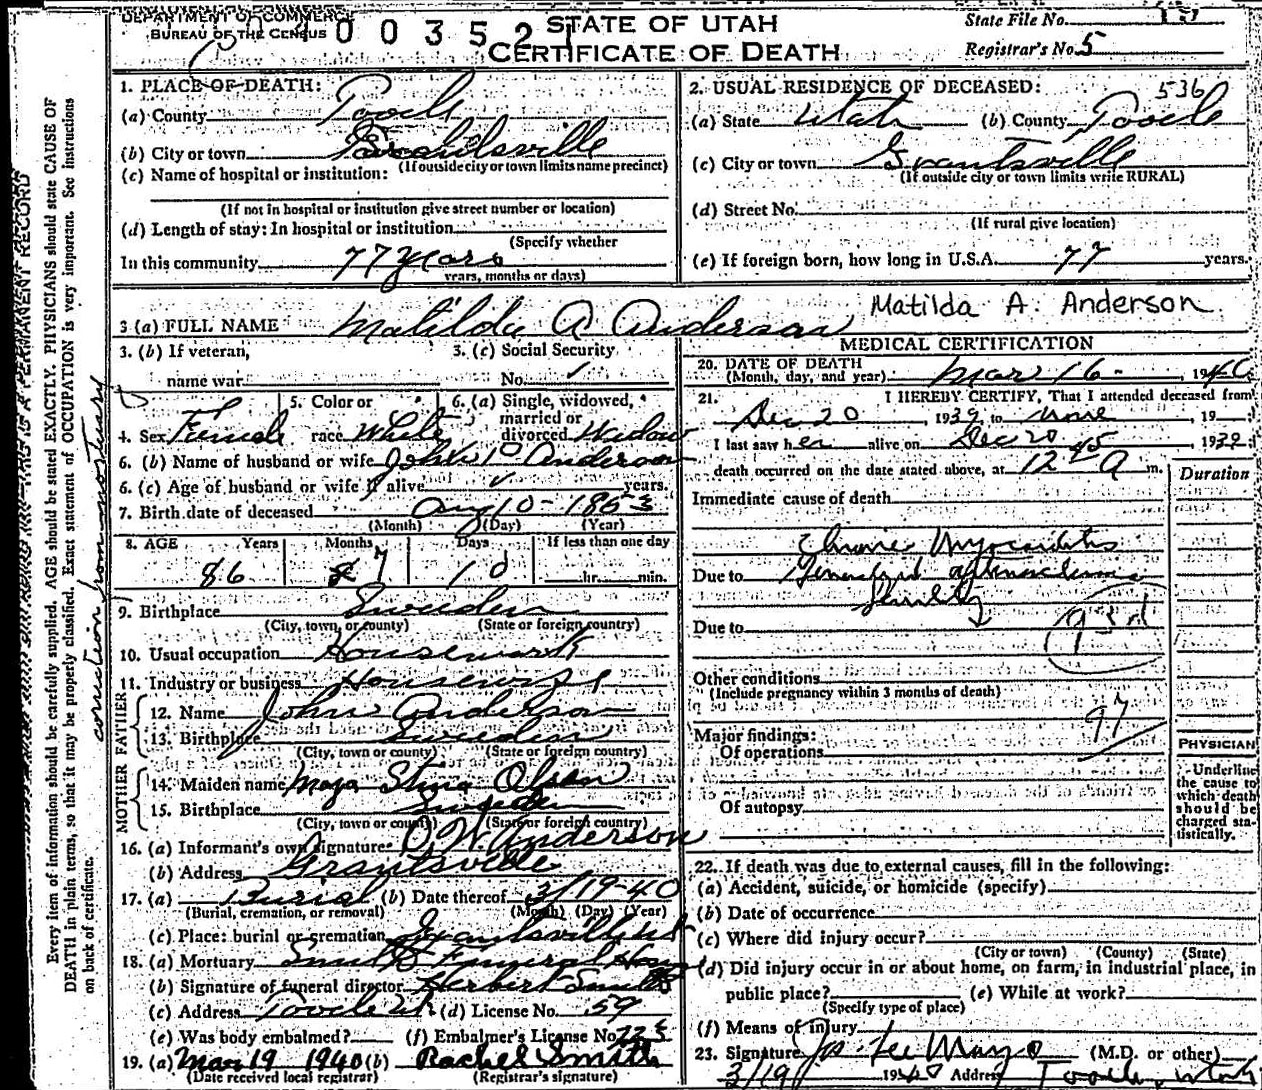 DEPARTMENT OF COMMERCE
BUREAU OF THE CENSUS
003521
STATE OF UTAH
CERTIFICATE OF DEATH
State File No.
Registrar's No. 5
1. PLACE OF DEATH:
(a) County Tooele
(b) City or town Grantsville
(If outside city or town limits name precinct)
(c) Name of hospital or institution:
(If not in hospital or institution give street number or location)
(d) Length of stay: In hospital or institution
(Specify whether
In this community 77 years
years, months or days)
2. USUAL RESIDENCE OF DECEASED:
536
(a) State Utah (b) County Tooele
(c) City or town Grantsville
(If outside city or town limits write RURAL)
(d) Street No.
(If rural give location)
(e) If foreign born, how long in U.S.A. 77 years.
3 (a) FULL NAME Matilda A Anderson
Matilda A. Anderson
3. (b) If veteran,
name war
3. (c) Social Security
No.
4. Sex Female
5. Color or
race White
6. (a) Single, widowed,
married or
divorced Widow
6. (b) Name of husband or wife John Anderson
6. (c) Age of husband or wife if alive years.
7. Birth date of deceased Aug 10 - 1853
(Month) (Day) (Year)
8. AGE Years Months Days If less than one day
86 7 hr. min.
9. Birthplace Sweden
(City, town, or county) (State or foreign country)
10. Usual occupation Housework
11. Industry or business Housewife
FATHER
12. Name John Anderson
13. Birthplace Sweden
(City, town or county) (State or foreign country)
MOTHER
14. Maiden name Maja Stina Olsen
15. Birthplace Sweden
(City, town or county) (State or foreign country)
16. (a) Informant's own signature O W Anderson
(b) Address Grantsville
17. (a) Burial (b) Date thereof 3/19-40
(Burial, cremation, or removal) (Month) (Day) (Year)
(c) Place: burial or cremation Grantsville Ut
18. (a) Mortuary Smith Funeral Home
(b) Signature of funeral director Herbert Smith
(c) Address Tooele Ut (d) License No. 59
(e) Was body embalmed? (f) Embalmer's License No.
19. (a) Mar 19 1940 (b) Rachel Smith
(Date received local registrar) (Registrar's signature)
MEDICAL CERTIFICATION
20. DATE OF DEATH
(Month, day, and year) Mar 16 - 1940
21. I HEREBY CERTIFY, That I attended deceased from
Dec 20 1939, to none 19
I last saw her alive on Dec 20 1939
death occurred on the date stated above, at 12 45 A m.
Duration
Immediate cause of death
Chronic Myocarditis
Due to
Senility
Due to
93d
Other conditions
(Include pregnancy within 3 months of death)
97
Major findings:
Of operations
Of autopsy
PHYSICIAN
Underline
the cause to
which death
should be
charged sta-
tistically.
22. If death was due to external causes, fill in the following:
(a) Accident, suicide, or homicide (specify)
(b) Date of occurrence
(c) Where did injury occur?
(City or town) (County) (State)
(d) Did injury occur in or about home, on farm, in industrial place, in
public place? (e) While at work?
(Specify type of place)
(f) Means of injury
23. Signature (M.D. or other)
3/19 1940 Address Tooele Utah
Every item of information should be carefully supplied. AGE should be stated EXACTLY. PHYSICIANS should state CAUSE OF
DEATH in plain terms, so that it may be properly classified. Exact statement of OCCUPATION is very important. See instructions
on back of certificate.
correction from mortuary
THIS IS A PERMANENT RECORD